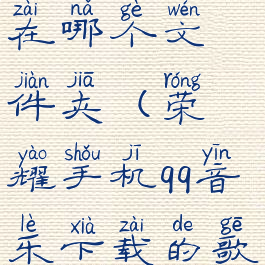 zài nǎ gè wén
在哪个文
jiàn jiā róng
件夹（荣
yào shǒu jī yīn
耀手机qq音
lè xià zài de gē
乐下载的歌